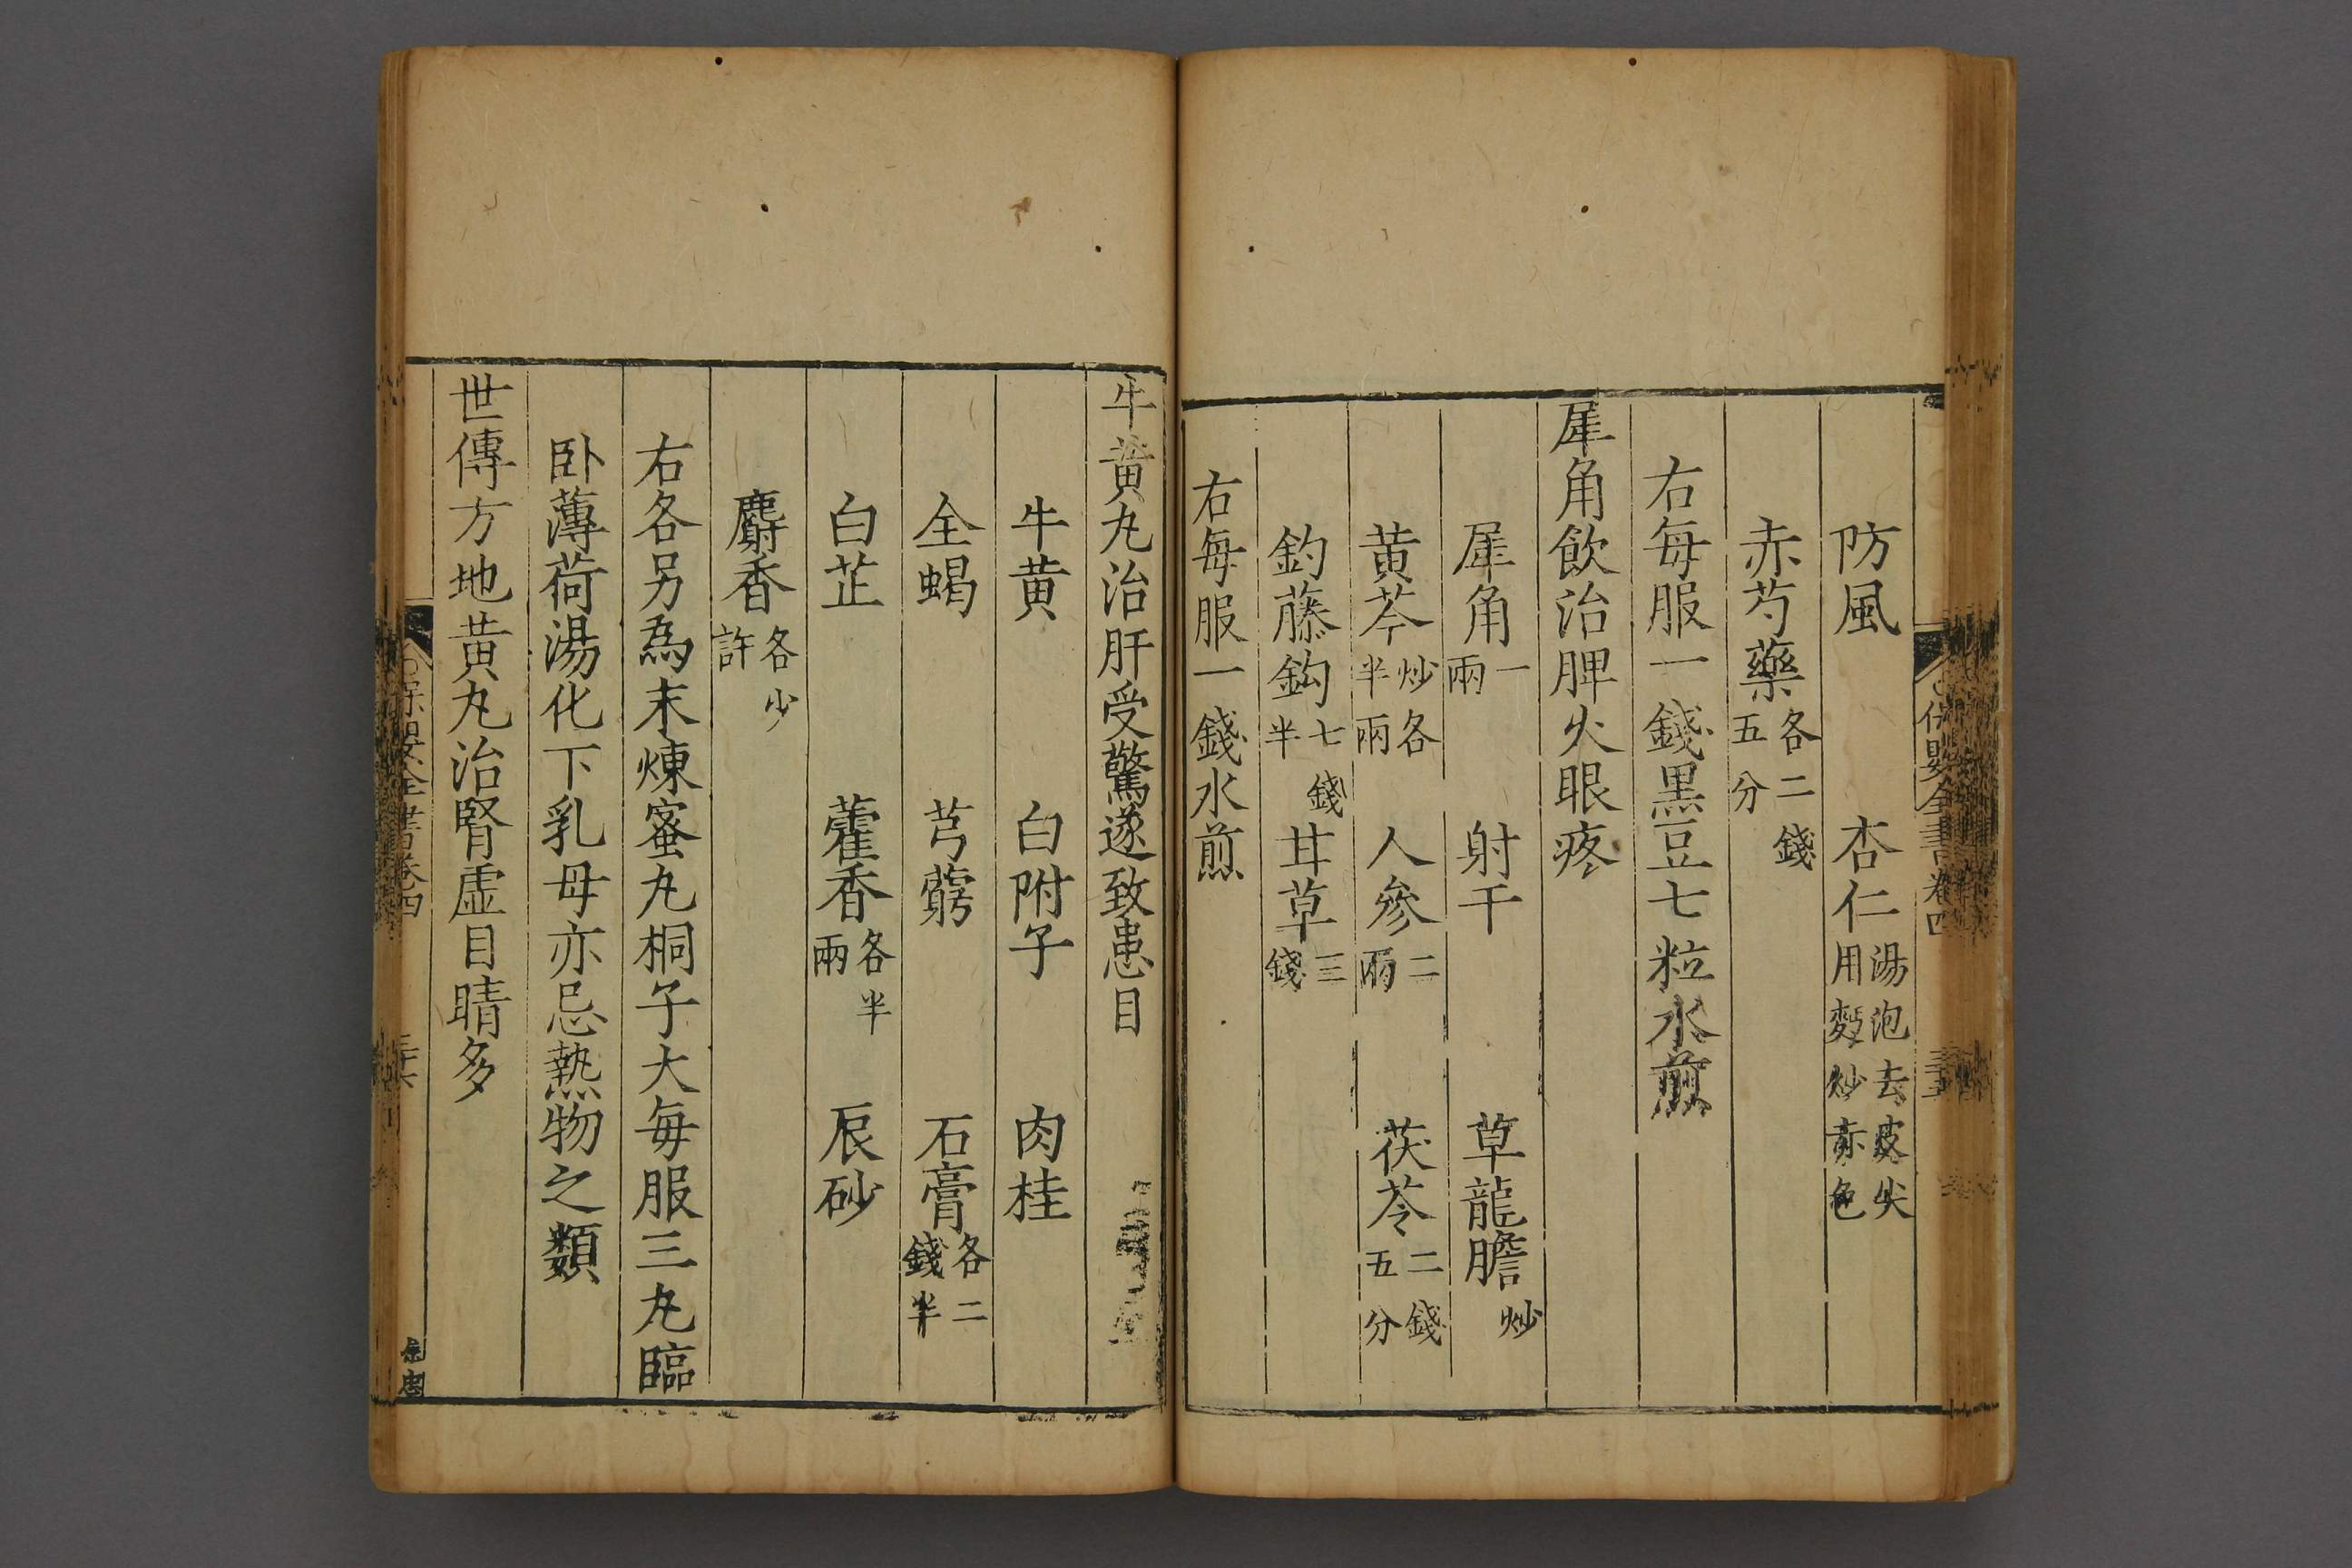 防風　杏仁湯泡去皮尖用麪炒赤色
赤芍藥各二錢五分
右每服一錢黑豆七粒水煎
犀角飲治脾火眼疼
犀角一兩　射干　草龍膽炒
黄芩炒各半兩　人參二兩　茯苓二錢五分
釣藤鈎七錢半　甘草三錢
右每服一錢水煎
牛黄丸治肝受驚遂致患目
牛黄　白附子　肉桂
全蝎　芎藭　石膏各二錢半
白芷　藿香各半兩　辰砂
麝香各少許
右各另爲末煉蜜丸桐子大每服三丸臨
卧薄荷湯化下乳母亦忌熱物之類
世傳方地黄丸治腎虛目睛多
保嬰全書卷四